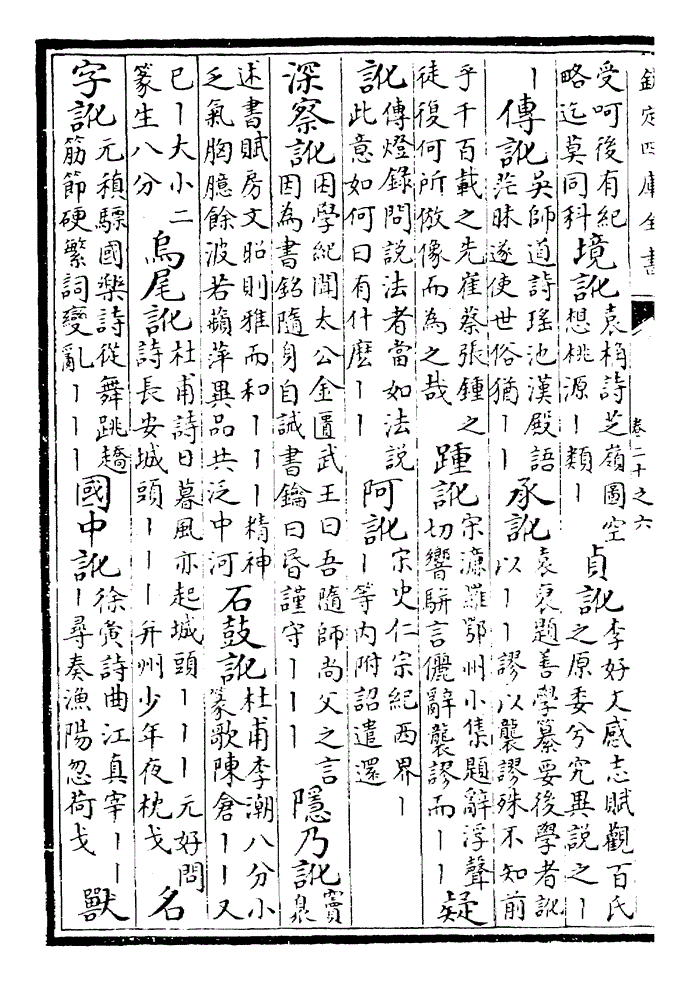 欽定四庫全書 卷二十之六
受呵後有紀略迄莫同科 境訛 袁桷詩芝嶺圖空想桃源丨類丨 貞訛 李好文感志賦觀百氏之原委兮究異說之丨
丨 傳訛 吳師道詩瑤池漢殿語茫昧遂使世俗猶丨丨 承訛 袁裒題善學纂要後學者訛以丨丨謬以襲謬殊不知前
乎千百載之先崔蔡張鍾之徒復何所倣像而為之哉 踵訛 宋濂羅鄂州小集題辭浮聲切響駢言儷辭襲謬而丨丨 疑
訛 傳燈錄問說法者當如法說此意如何曰有什麽丨丨 阿訛 宋史仁宗紀西界丨丨等内附詔遣還
深察訛 困學紀聞太公金匱武王曰吾隨師尚父之言因為書銘隨身自誡書鑰曰昏謹守丨丨丨 隱乃訛 竇泉
述書賦房文昭則雅而和丨丨丨精神乏氣胸臆餘波若蘋萍異品共泛中河 石鼓訛 杜甫李潮八分小篆歌陳倉丨丨又
已丨大小二篆生八分 烏尾訛 杜甫詩日暮風亦起城頭丨丨丨元好問詩長安城頭丨丨丨并州少年夜枕戈 名
字訛 元稹驃國樂詩從舞跳趫筋節硬繁詞變亂丨丨丨 國中訛 徐夤詩曲江真宰丨丨丨尋奏漁陽忽荷戈 獸